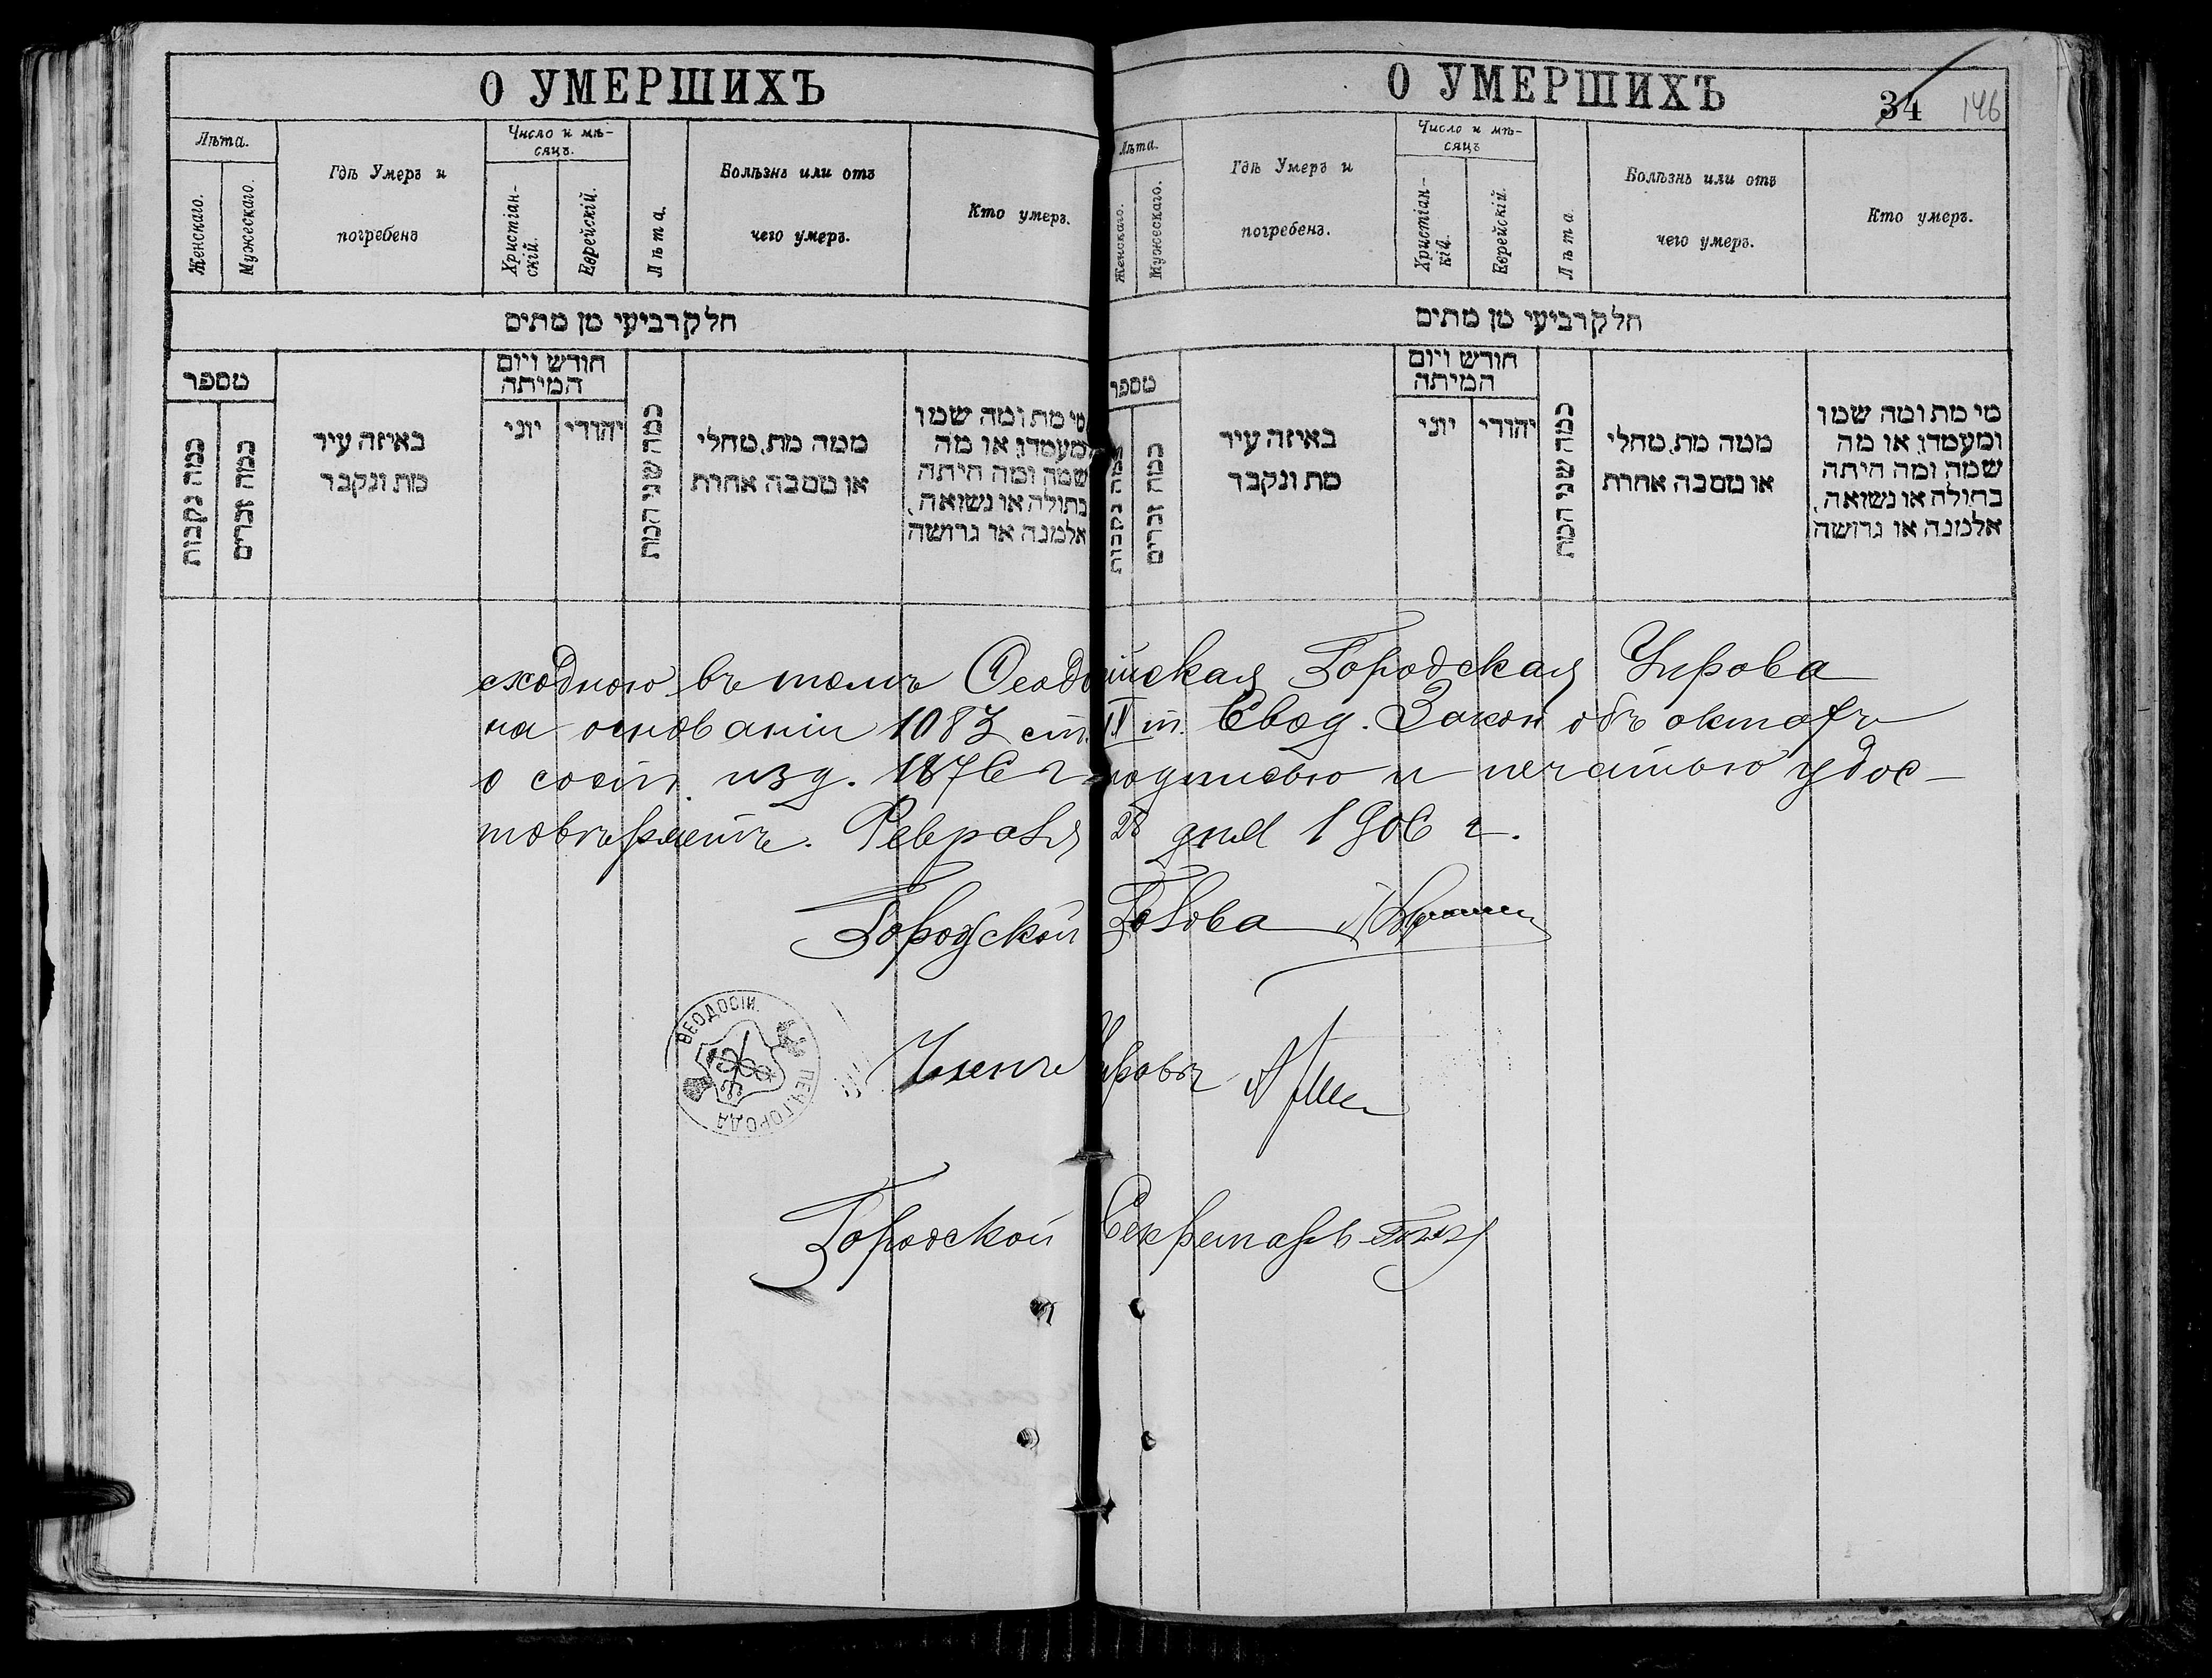 О УМЕРШИХЪ
Лѣта.
Женскаго.
Мужескаго.
Гдѣ Умеръ и
погребенъ
Число и мѣ-
сяцъ.
Христіан-
скій.
Еврейскій.
Лѣта.
Болѣзнь или отъ
чего умеръ.
Кто умеръ.
חלק רביעי מן מתים
מספר
כמה נקבות
כמה זכרים
באיזה עיר
מת ונקבר
חודש ויום
המיתה
יוני
יהודי
כמה שני המת
ממה מת, מחלי
או מסבה אחרת
מי מת ומה שמו
ומעמדו, או מה
שמה ומה היתה
בתולה או נשואה,
אלמנה או גרושה
О УМЕРШИХЪ
34 146
Лѣта.
Женскаго.
Мужескаго.
Гдѣ Умеръ и
погребенъ.
Число и мѣ-
сяцъ
Христіан-
кій.
Еврейскій.
Лѣта.
Болѣзнь или отъ
чего умеръ.
Кто умеръ.
חלק רביעי מן מתים
מספר
כמה נקבות
כמה זכרים
באיזה עיר
מת ונקבר
חודש ויום
המיתה
יוני
יהודי
כמה שני המת
ממה מת, מחלי
או מסבה אחרת
מי מת ומה שמו
ומעמדו, או מה
שמה ומה היתה
בתולה או נשואה,
אלמנה או גרושה
сходною въ томъ Ѳеодосійская Городская Управа
на основаніи 1083 ст. II т. Свод. Закон объ актахъ
о сост. изд. 1876 г подписью и печатью удос-
товѣряетъ. Февраля 28 дня 1906 г.
Городской Голова
ѲЕОДОСІИ ПЕЧ. ГОРОДА
Членъ Управы
Городской Секретарь